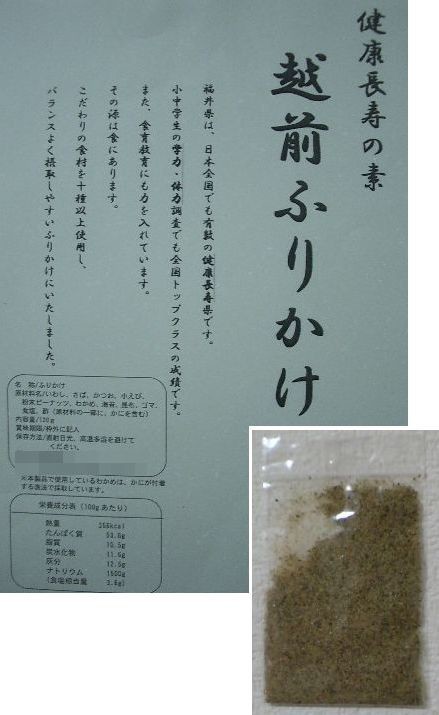 健康長寿の素
越前ふりかけ
福井県は、日本全国でも有数の健康長寿県です。
小中学生の学力・体力調査でも全国トップクラスの成績です。
また、食育教育にも力を入れています。
その源は食にあります。
こだわりの食材を十種以上使用し、
バランスよく摂取しやすいふりかけにいたしました。
名　称/ふりかけ
原材料名/いわし、さば、かつお、小えび、
粉末ピーナッツ、わかめ、海苔、昆布、ゴマ、
食塩、酢（原材料の一部に、かにを含む）
内容量/120g
賞味期限/枠外に記入
保存方法/直射日光、高温多湿を避けて
ください。
※本製品で使用しているわかめは、かにが付着
する漁法で採取しています。
栄養成分表（100gあたり）
熱量 356kcal
たんぱく質
脂質 10.5g
炭水化物 11.6g
灰分 12.5g
ナトリウム 1500g
（食塩相当量 3.8g）